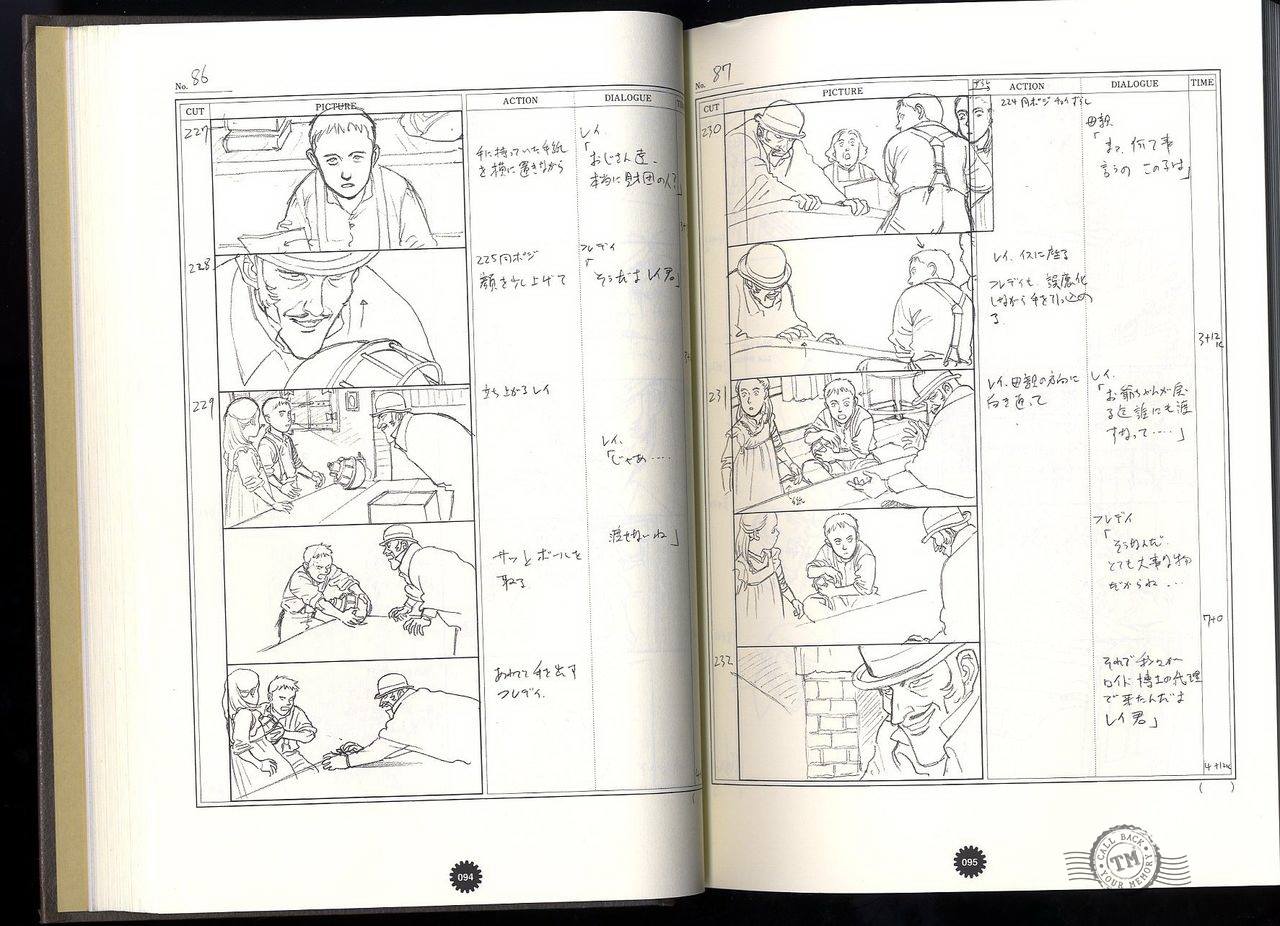 No. 86
CUT
PICTURE
ACTION
DIALOGUE
227
手に持っていた手紙
を横に置きながら
レイ.
「おじさん達、
本当に財団の人?」
228
225同ポジ
顔を少し上げて
フレディ
「そうだよ レイ君」
229
立ち上がるレイ
レイ.
「じゃあ……
渡せないね」
サッとボールを
取る
あわてて手を出す
フレディ.
094
No. 87
CUT
PICTURE
ACTION
DIALOGUE
TIME
230
224同ポジ
母親
「まっ 何て事
言うの この子は」
レイ、イスに座る
フレディも、誤魔化
しながら手を引っ込め
る
3+12
231
レイ.母親の方向に
向き直って
レイ.
「お爺ちゃんが戻
る迄 誰にも渡
すなって……」
フレディ
「そうなんだ.
とても大事な物
だからね…
7+0
232
それで私々が
ロイド博士の代理
で来たんだよ
レイ君」
4+12
( )
095
CALL BACK
TM
YOUR MEMORY